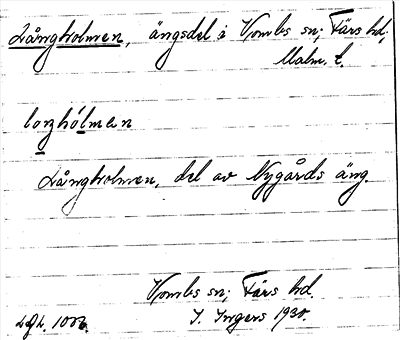 Långholmen, ängsdel i Vombs sn; Färs hd,
Malm. l.
lorghólmen
Långholmen, del av Nygårds äng.
Vombs sn; Färs hd.
I. Ingers 1930.